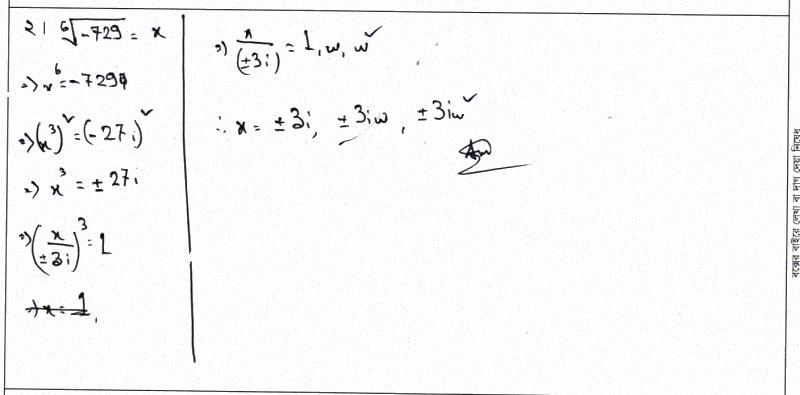 ২। ⁶√-729 = x
=> x⁶ = -729
=> (x³)² = (-27i)²
=> x³ = ± 27i
=> (x/±3i)³ = 1
=> x = 1
=> x/(±3i) = 1, w, w²
∴ x = ± 3i, ± 3iw, ± 3iw²
Ans
বক্সের বাইরে লেখা বা দাগ দেয়া নিষেধ